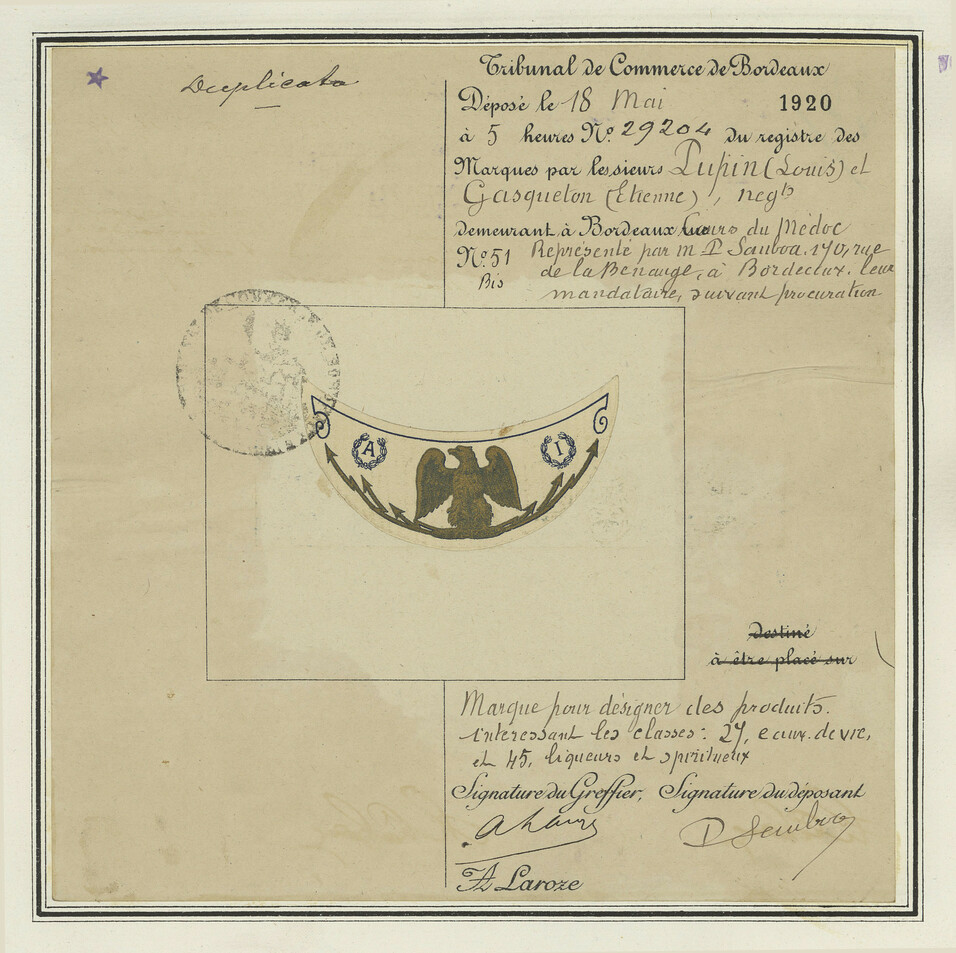 Duplicata
Tribunal de Commerce de Bordeaux
Déposé le 18 Mai 1920
à 5 heures N.º 29204 du registre des
Marques par les sieurs Pupin (Louis) et
Gasqueton (Etienne), négts
demeurant à Bordeaux Cours du Médoc
N.º 51 Représenté par m P Sauboa, 170, rue
Bis de la Benauge, à Bordeaux, leur
mandataire, suivant procuration
A I
Destiné
à être placé sur
Marque pour désigner des produits.
intéressant les classes: 27, eaux.de vie,
et 45, liqueurs et spiritueux
Signature du Greffier, Signature du déposant
P Sauboa
A Laroze